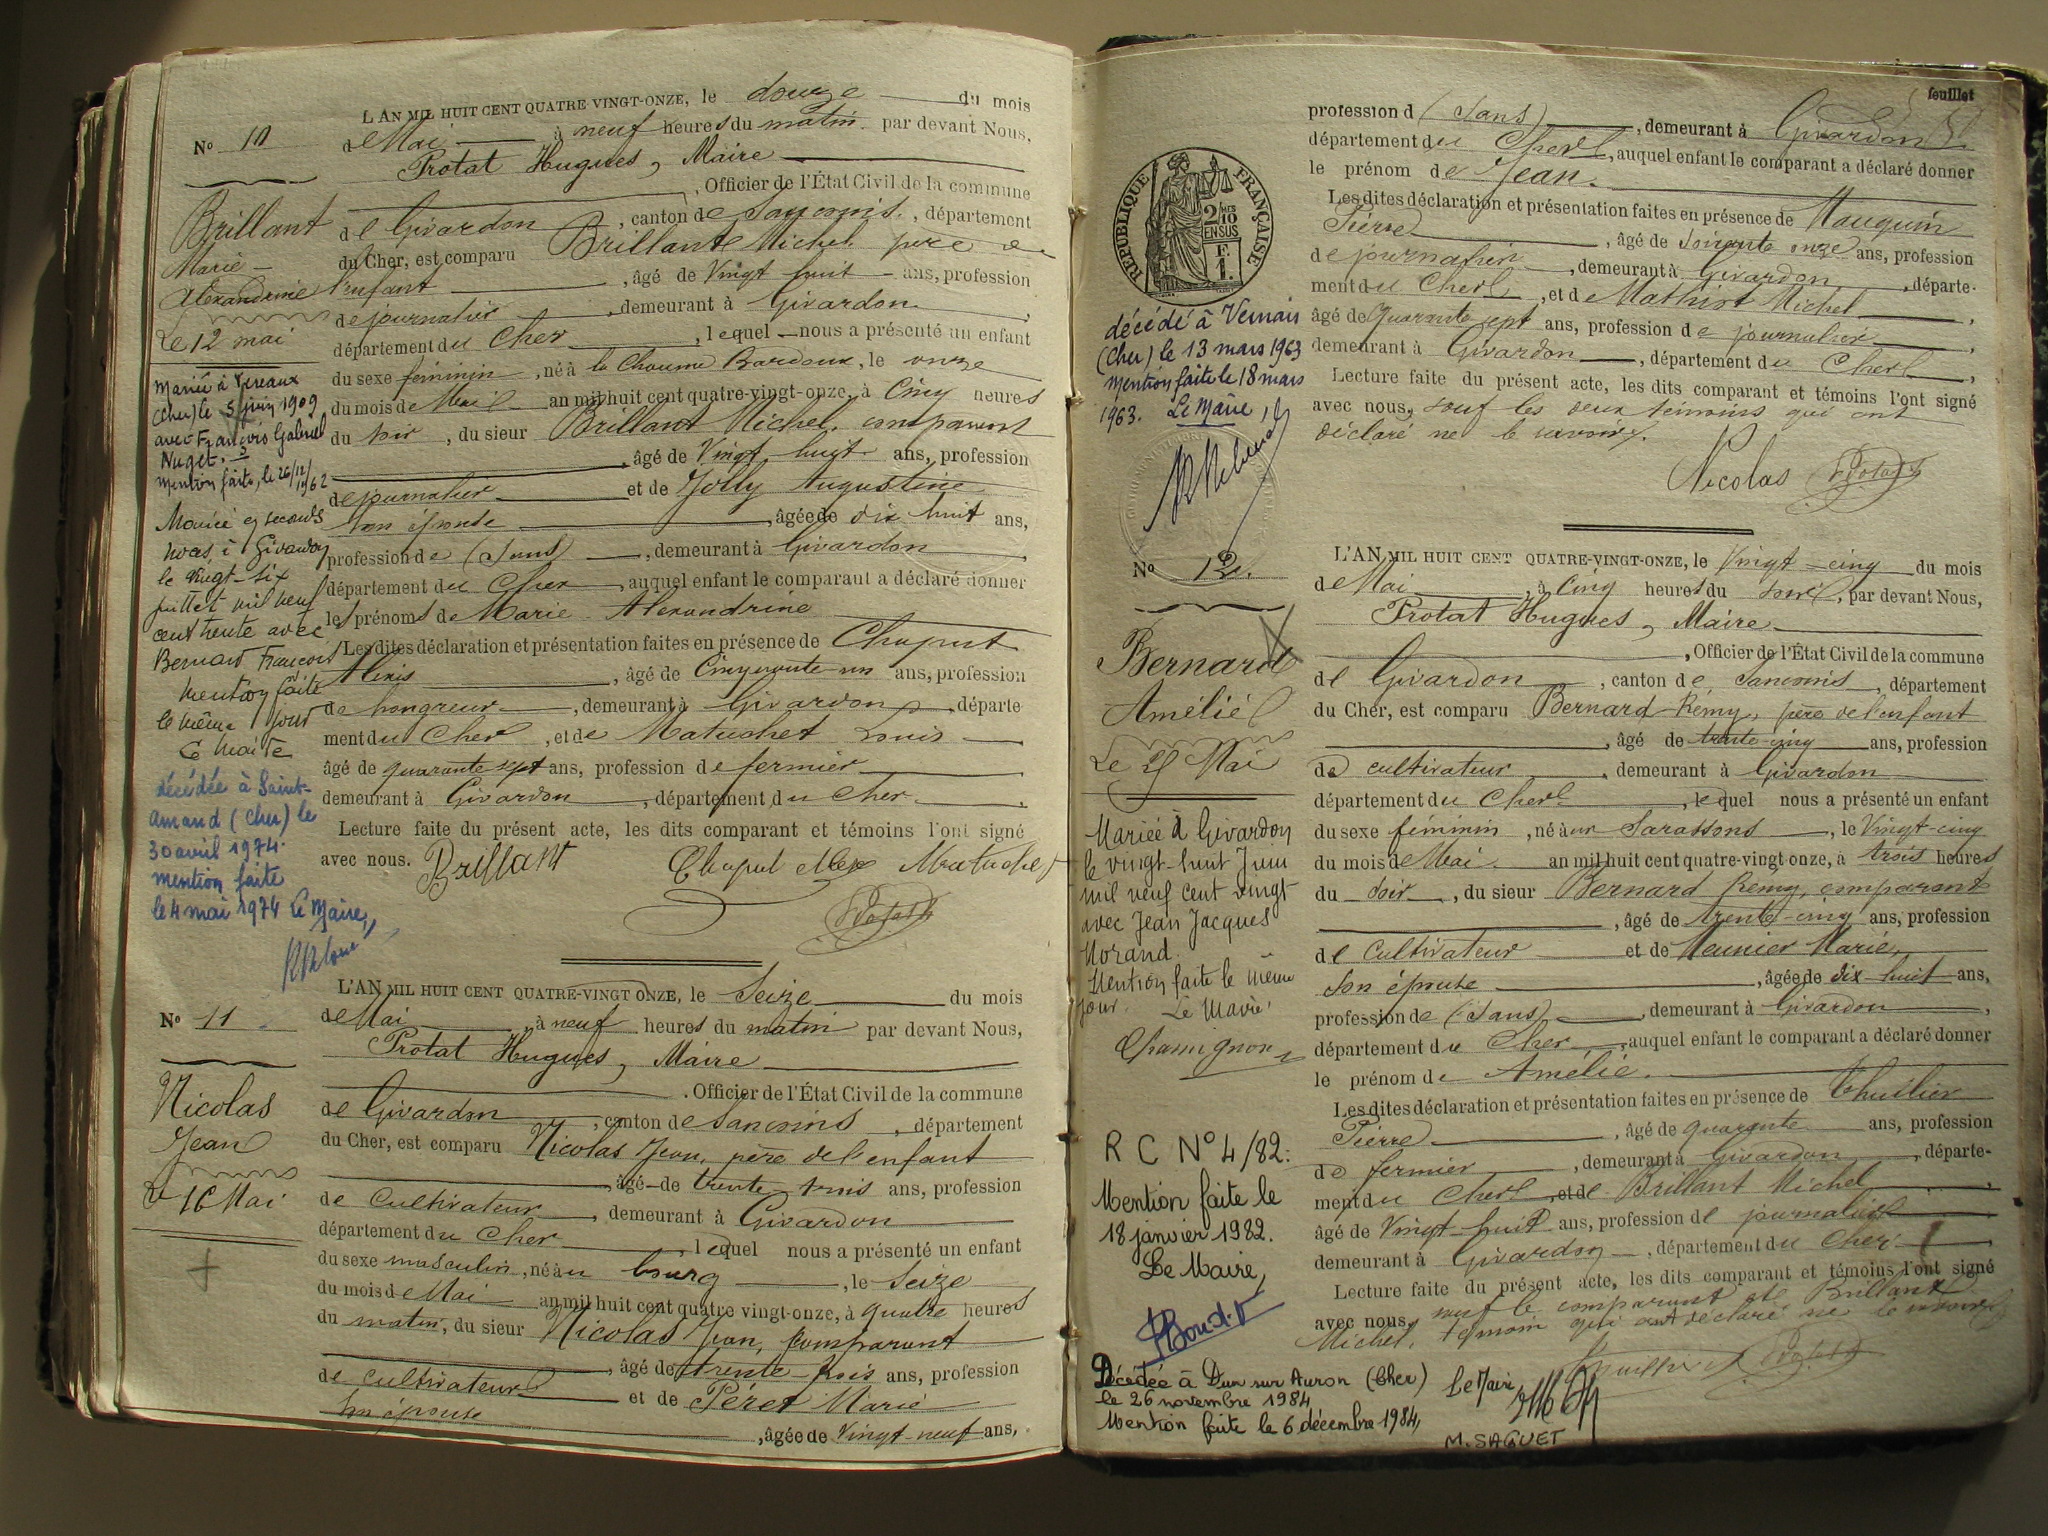 L'AN MIL HUIT CENT QUATRE VINGT-ONZE, le douze du mois
de Mai à neuf heures du matin par devant Nous,
Protat Hugues, Maire
, Officier de l'État Civil de la commune
de Givardon, canton de Sancoins, département
du Cher, est comparu Brillant Michel père de
l'enfant, âgé de Vingt huit ans, profession
de journalier, demeurant à Givardon,
département du Cher, lequel nous a présenté un enfant
du sexe féminin, né à la Chaume Bardoux, le onze
du mois de Mai an mil huit cent quatre-vingt-onze, à Cinq heures
du soir, du sieur Brillant Michel, comparant
, âgé de Vingt huit ans, profession
de journalier et de Jolly Augustine
son épouse, âgée de dix huit ans,
profession de (Sans), demeurant à Givardon,
département du Cher, auquel enfant le comparant a déclaré donner
les prénoms de Marie Alexandrine
Les dites déclaration et présentation faites en présence de Chaput
Alexis, âgé de Cinquante un ans, profession
de hongreur, demeurant à Givardon, départe-
ment du Cher, et de Matuchet Louis
âgé de quarante sept ans, profession de fermier
demeurant à Givardon, département du Cher.
Lecture faite du présent acte, les dits comparant et témoins l'ont signé
avec nous. Brillant Chaput Alex Matuchet
Protat h
No 10
Brillant
Marie-
Alexandrine
Le 12 mai
Mariée à Vereaux
(Cher) le 5 juin 1909
avec François Gabriel
Nuget.
Mention faite, le 26/12/1962
Mariée en seconds
noces à Givardon
le vingt-six
juillet mil neuf
cent trente avec
Bernard François
Mention faite
le même jour
Le Maire
décédée à Saint-
Amand (Cher) le
30 avril 1974.
mention faite
le 4 mai 1974 Le Maire,
L'AN MIL HUIT CENT QUATRE-VINGT ONZE, le Seize du mois
de Mai à neuf heures du matin par devant Nous,
Protat Hugues, Maire
. Officier de l'État Civil de la commune
de Givardon, canton de Sancoins, département
du Cher, est comparu Nicolas Jean, père de l'enfant
, âgé de trente trois ans, profession
de Cultivateur, demeurant à Givardon
département du Cher, lequel nous a présenté un enfant
du sexe masculin, né au bourg, le Seize
du mois de Mai an mil huit cent quatre vingt-onze, à quatre heures
du matin, du sieur Nicolas Jean, comparant
, âgé de trente-trois ans, profession
de cultivateur et de Péret Marie
son épouse
, âgée de Vingt-neuf ans,
No 11
Nicolas
Jean
Le 16 Mai
feuillet
profession d (Sans), demeurant à Givardon
département du Cher, auquel enfant le comparant a déclaré donner
le prénom de Jean.
Les dites déclaration et présentation faites en présence de Mauguin
Pierre, âgé de Soixante onze ans, profession
de journalier, demeurant à Givardon, départe-
ment du Cher, et de Mathiot Michel,
âgé de Quarante sept ans, profession de journalier,
demeurant à Givardon, département du Cher,
Lecture faite du présent acte, les dits comparant et témoins l'ont signé
avec nous, sauf les deux témoins qui ont
déclaré ne le savoir.
Nicolas Protat h
RÉPUBLIQUE FRANÇAISE
2/10 EN SUS
F. 1.
décédé à Vernais
(Cher) le 13 mars 1963
mention faite le 18 mars
1963. Le Maire,
No 12.
Bernard
Amélie
Le 25 Mai
Mariée à Givardon
le vingt-huit Juin
mil neuf cent vingt
avec Jean Jacques
Morand.
Mention faite le même
jour. Le Maire
Chamignon
R C N° 4/82.
Mention faite le
18 janvier 1982.
Le Maire,
Décédée à Dun sur Auron (Cher)
le 26 novembre 1984
Mention faite le 6 décembre 1984,
Le Maire
M. SAGUET
L'AN MIL HUIT CENT QUATRE-VINGT-ONZE, le Vingt-cinq du mois
de Mai, à Cinq heures du soir, par devant Nous,
Protat Hugues, Maire
, Officier de l'État Civil de la commune
de Givardon, canton de Sancoins, département
du Cher, est comparu Bernard Rémy, père de l'enfant
, âgé de trente-cinq ans, profession
de cultivateur, demeurant à Givardon
département du Cher, lequel nous a présenté un enfant
du sexe féminin, né aux Sarassons, le Vingt-cinq
du mois de Mai an mil huit cent quatre-vingt onze, à trois heures
du soir, du sieur Bernard Rémy, comparant
, âgé de trente-cinq ans, profession
de Cultivateur et de Meunier Marie,
son épouse, âgée de dix-huit ans,
profession de (Sans), demeurant à Givardon,
département du Cher, auquel enfant le comparant a déclaré donner
le prénom de Amélie.
Les dites déclaration et présentation faites en présence de Thuillier
Pierre, âgé de quarante ans, profession
de fermier, demeurant à Givardon, départe-
ment du Cher, et de Brillant Michel,
âgé de Vingt-huit ans, profession de journalier
demeurant à Givardon, département du Cher
Lecture faite du présent acte, les dits comparant et témoins l'ont signé
avec nous, sauf le comparant et Brillant
Michel, témoin qui ont déclaré ne le savoir
Thuillier Protat h